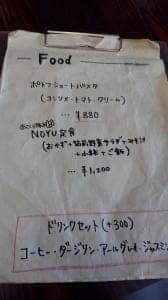 Food
ポトフショートパスタ
(コンソメ・トマト・クリーム)
… ¥880
NOYU定食
(おかず+
+小鉢+ご飯)
… ¥1,200
ドリンクセット(+300)
コーヒー・ダージリン・アールグレイ・ジャスミン